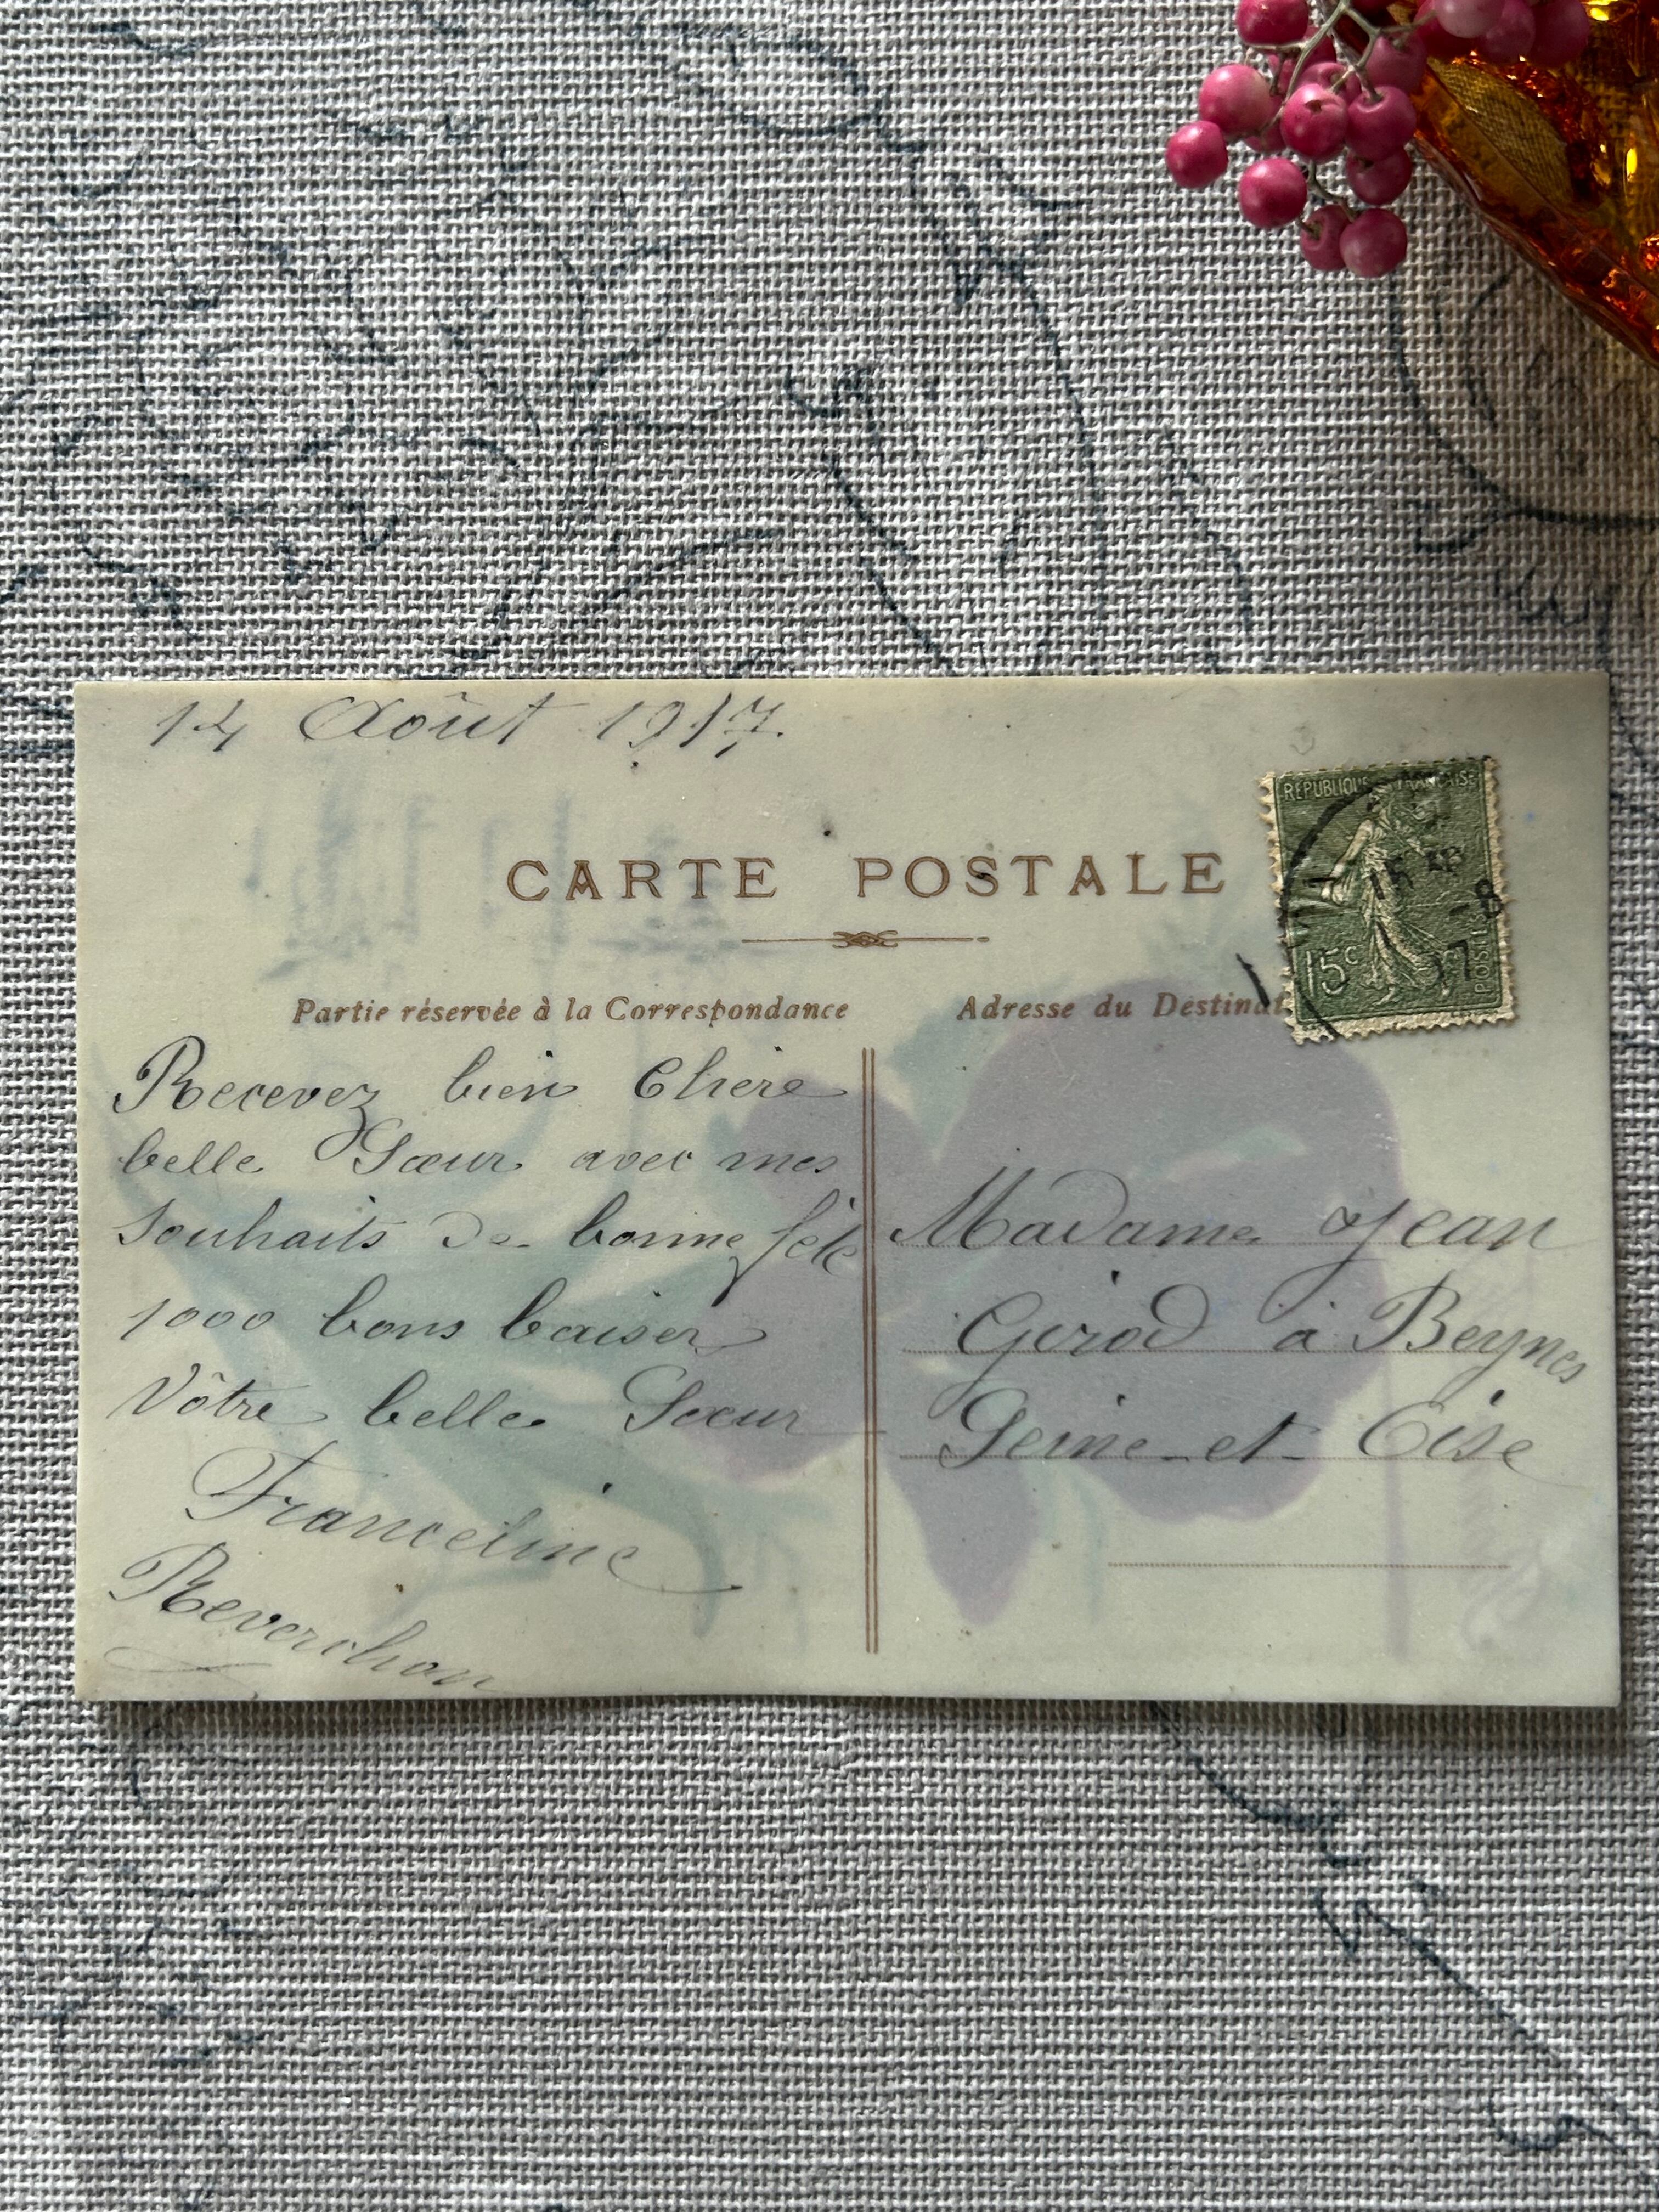 14 Août 1917.
CARTE POSTALE
REPUBLIQUE FRANÇAISE
15c
POSTES
15
-8
17
Partie réservée à la Correspondance
Adresse du Destinat
Recevez bien Chère
belle Sœur avec mes
souhaits de bonne fête
1000 bons baisers
Vôtre belle Sœur
Franceline
Reverchon
Madame Jean
Girod à Beynes
Seine-et-Oise